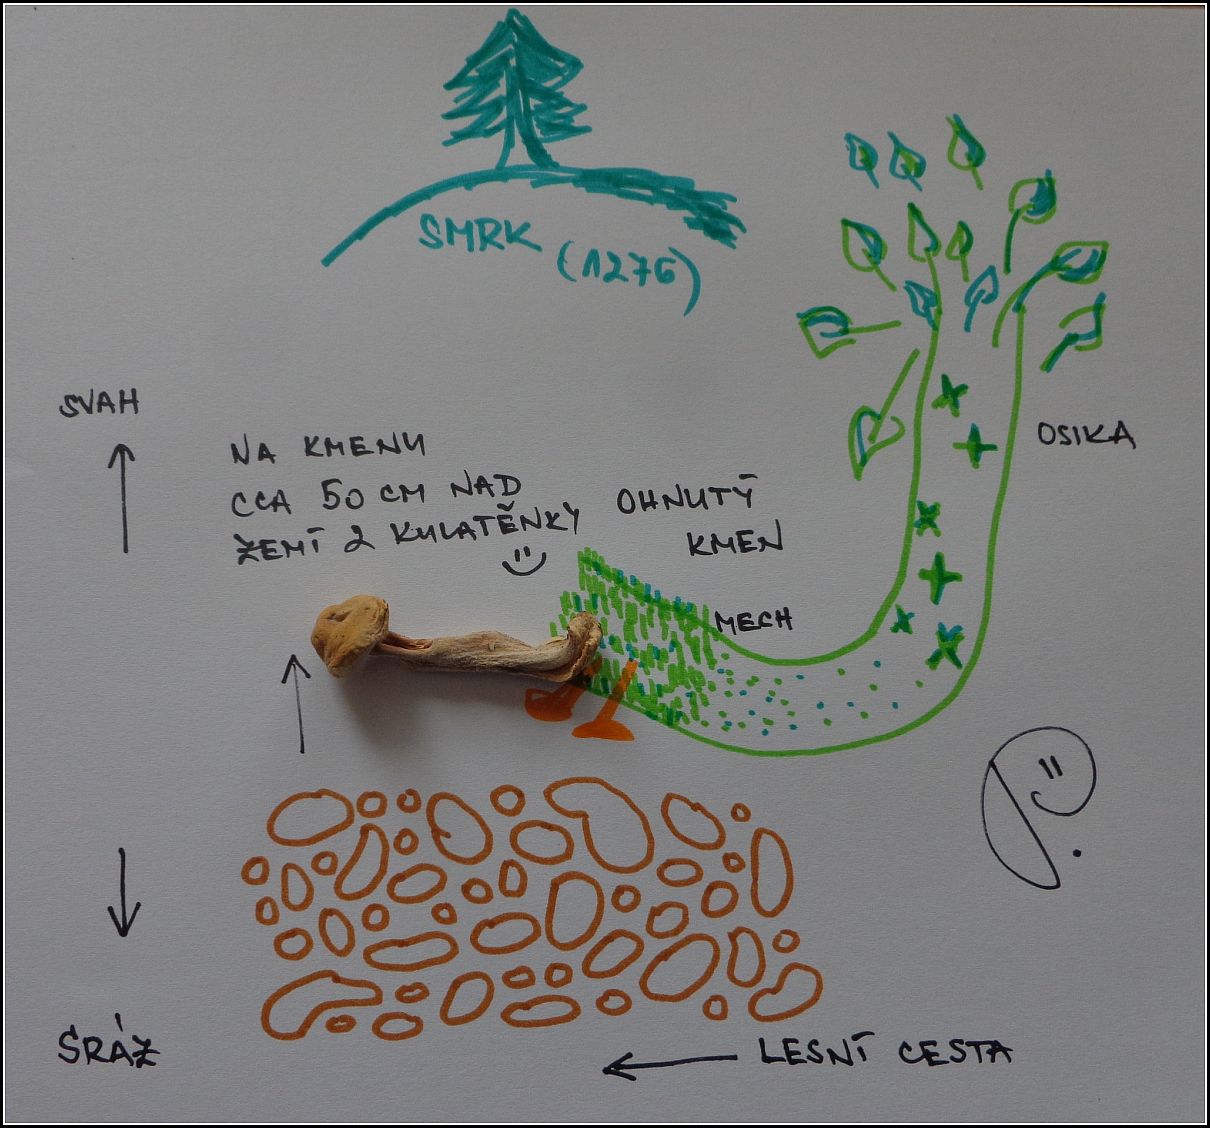 SMRK
(1276)
SVAH
NA KMENU
CCA 50 CM NAD
ZEMÍ 2 KULATĚNKY
OHNUTÝ
KMEN
MECH
OSIKA
P.
SRÁZ
LESNÍ CESTA